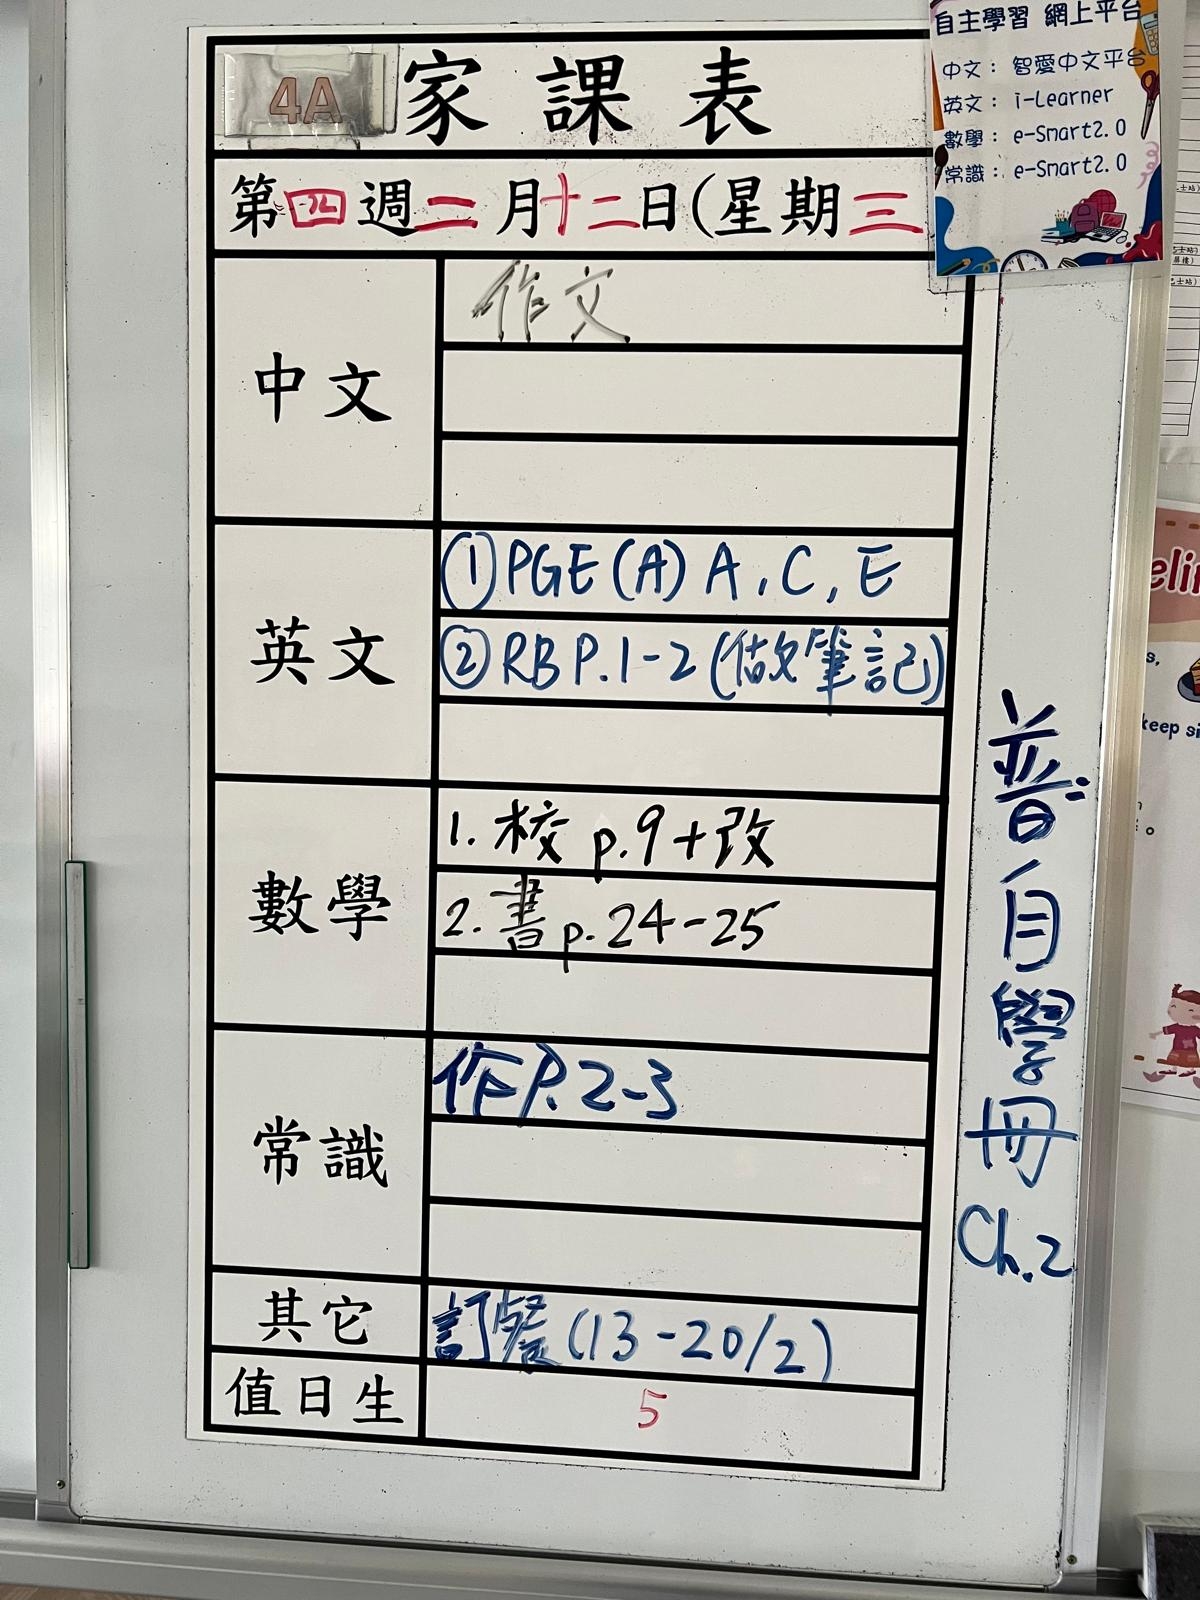 4A 家課表
第四週二月十二日(星期三
中文
作文
英文
①PGE(A) A, C, E
②RB P.1-2(做筆記)
數學
1. 校 p.9+改
2. 書 p.24-25
常識
作P.2-3
其它
訂餐(13-20/2)
值日生
5
普自學冊
Ch.2
自主學習 網上平台
中文： 智愛中文平台
英文： i-Learner
數學： e-Smart2.0
常識： e-Smart2.0
keep si